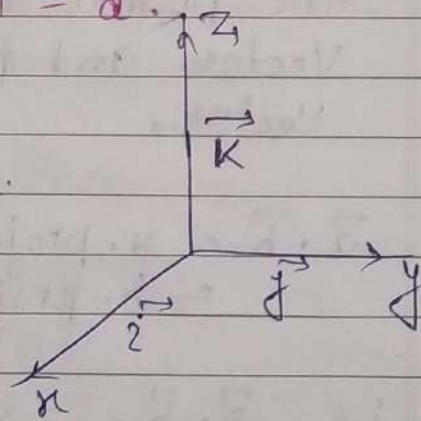 - d.
Z
K
j y
i
x